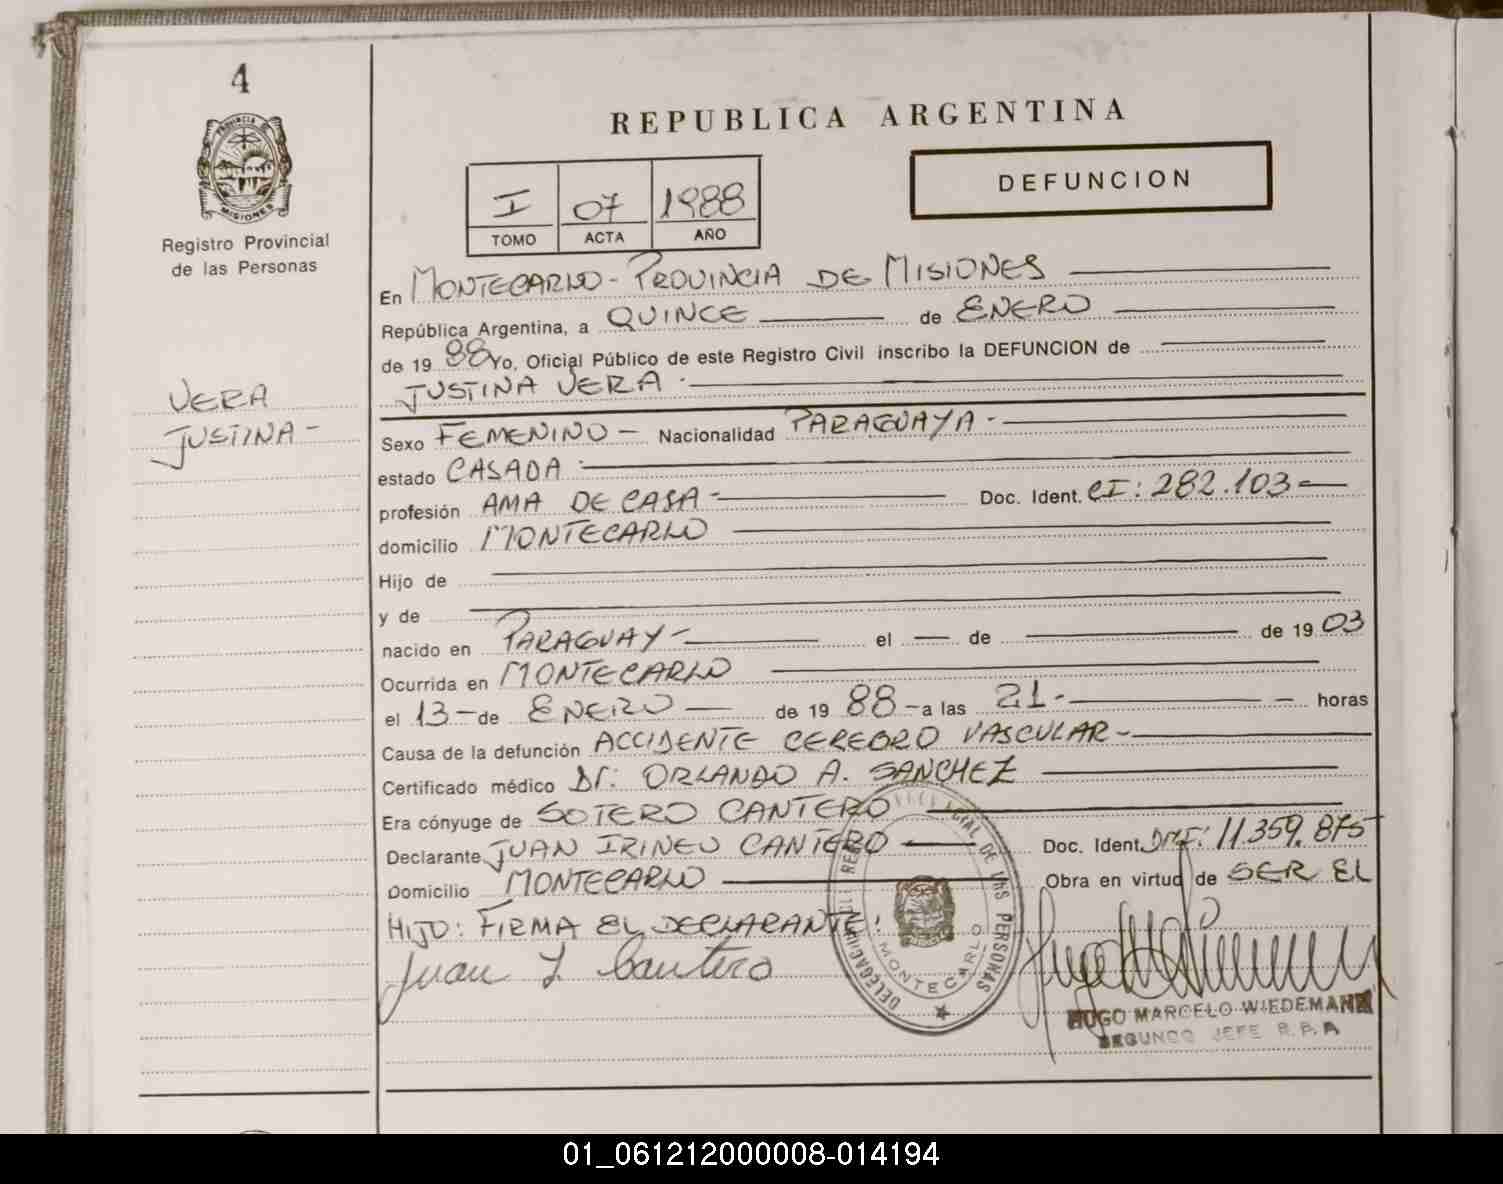 4
PROVINCIA
MISIONES
Registro Provincial
de las Personas
VERA
JUSTINA -
REPUBLICA ARGENTINA
I 07 1988
TOMO ACTA AÑO
DEFUNCION
En MONTECARLO - PROVINCIA DE MISIONES
República Argentina, a QUINCE de ENERO
de 19 88 Yo, Oficial Público de este Registro Civil inscribo la DEFUNCION de
JUSTINA VERA -
Sexo FEMENINO - Nacionalidad PARAGUAYA -
estado CASADA -
profesión AMA DE CASA - Doc. Ident. CI: 282.103 -
domicilio MONTECARLO
Hijo de
y de
nacido en PARAGUAY - el — de — de 19 03
Ocurrida en MONTECARLO
el 13 - de ENERO — de 19 88 - a las 21 - horas
Causa de la defunción ACCIDENTE CEREBRO VASCULAR -
Certificado médico Dr: ORLANDO A. SANCHEZ
Era cónyuge de SOTERO CANTERO
Declarante JUAN IRINEO CANTERO — Doc. Ident. DNI: 11.359.875
Domicilio MONTECARLO Obra en virtud de SER EL
HIJO: FIRMA EL DECLARANTE:
Juan I Cantero
DE LAS PERSONAS
DELEGACION
MONTECARLO
HUGO MARCELO WIEDEMANN
SEGUNDO JEFE R.P.P.
01_061212000008-014194